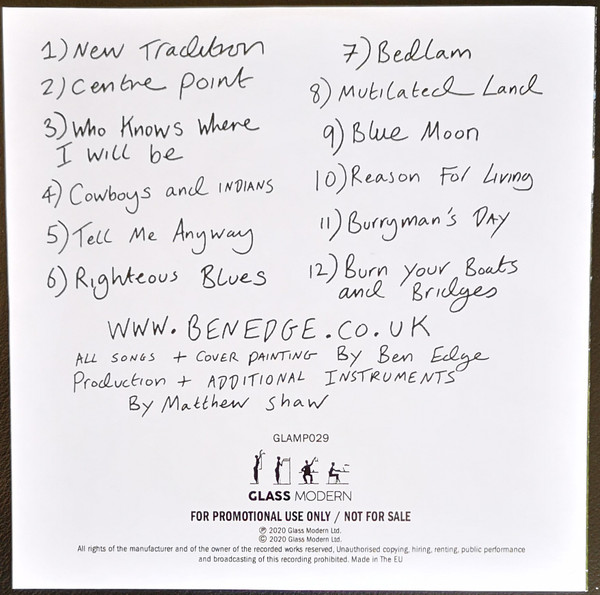 1) New Tradition
2) Centre Point
3) Who Knows Where
I will be
4) Cowboys and INDIANS
5) Tell Me Anyway
6) Righteous Blues
7) Bedlam
8) Mutilated Land
9) Blue Moon
10) Reason For Living
11) Burryman's DAY
12) Burn your Boats
and Bridges
WWW.BENEDGE.CO.UK
ALL SONGS + COVER PAINTING By Ben Edge
Production + ADDITIONAL INSTRUMENTS
By Matthew Shaw
GLAMP029
GLASS MODERN
FOR PROMOTIONAL USE ONLY / NOT FOR SALE
℗ 2020 Glass Modern Ltd.
© 2020 Glass Modern Ltd.
All rights of the manufacturer and of the owner of the recorded works reserved, Unauthorised copying, hiring, renting, public performance
and broadcasting of this recording prohibited. Made in The EU